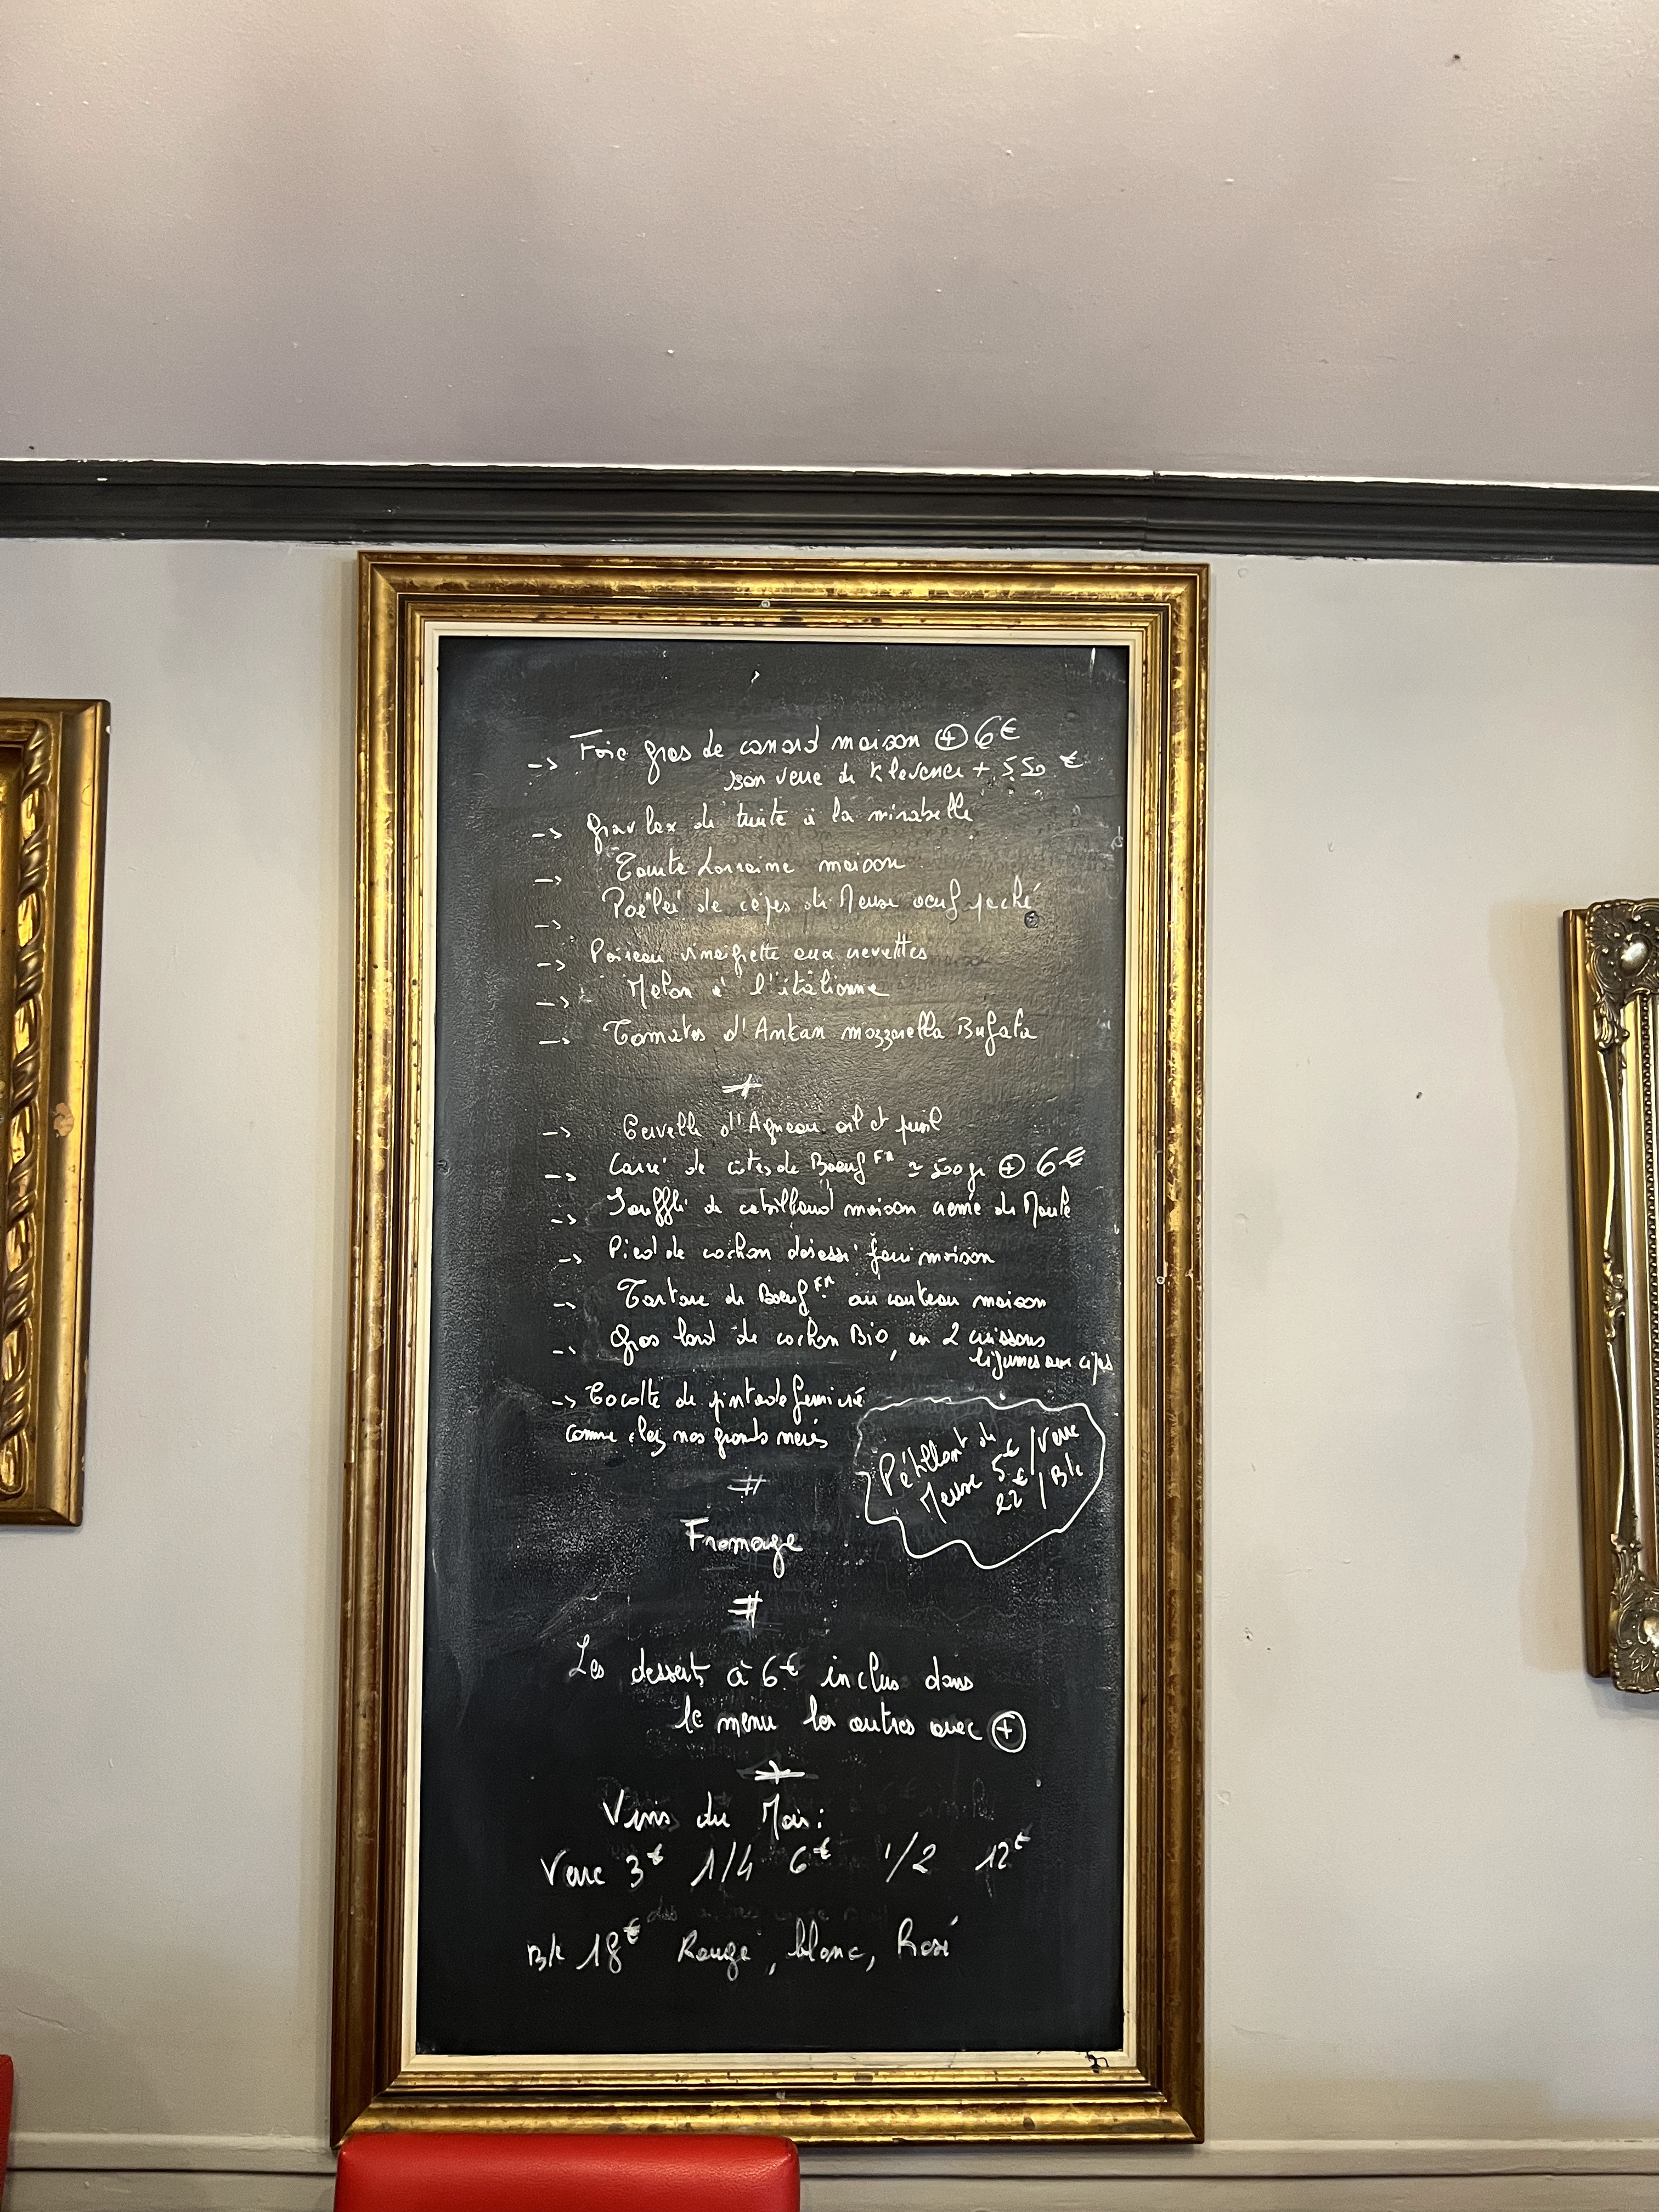 -> Foie gras de canard maison ⊕ 6€
son verre de Klevener + 5.50 €
-> Gravlax de truite à la mirabelle
-> Tourte Lorraine maison
-> Poêlée de cèpes de Meuse oeuf poché
-> Poireau vinaigrette aux crevettes
-> Melon à l'italienne
-> Tomates d'Antan mozzarella Bufala
-> Cervelle d'Agneau ail et persil
-> Carré de côtes de Boeuf FR ≈ 500 gr ⊕ 6€
-> Soufflé de cabillaud maison crème de Moule
-> Pied de cochon désossé farci maison
-> Tartare de Boeuf FR au couteau maison
-> Gros lard de cochon Bio, en 2 cuissons
légumes aux cèpes
-> Cocotte de pintade fermière
comme chez nos grands mères
#
Pétillant de
Meuse 5€/verre
22€/Blle
Fromage
#
Les desserts à 6€ inclus dans
le menu les autres avec ⊕
Vins du Mois:
Verre 3€ 1/4 6€ 1/2 12€
Blle 18€ Rouge, blanc, Rosé